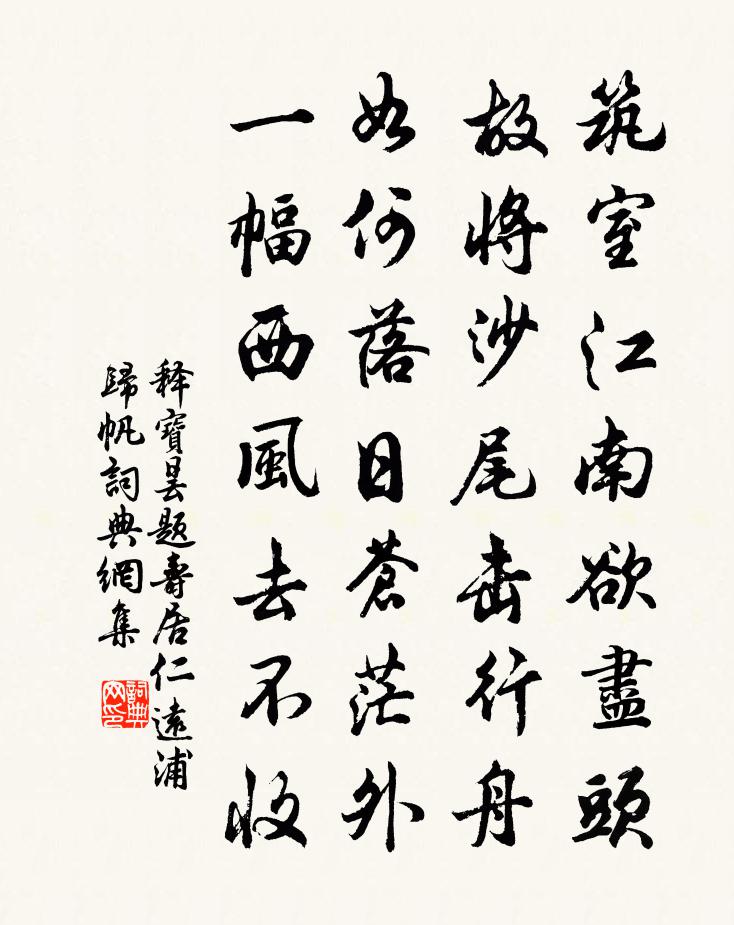 筑室江南欲盡頭
故將沙尾击行舟
如何落日蒼茫外
一幅西風去不收
释寶昙题壽居仁遠浦
歸帆詞典網集
詞典网印